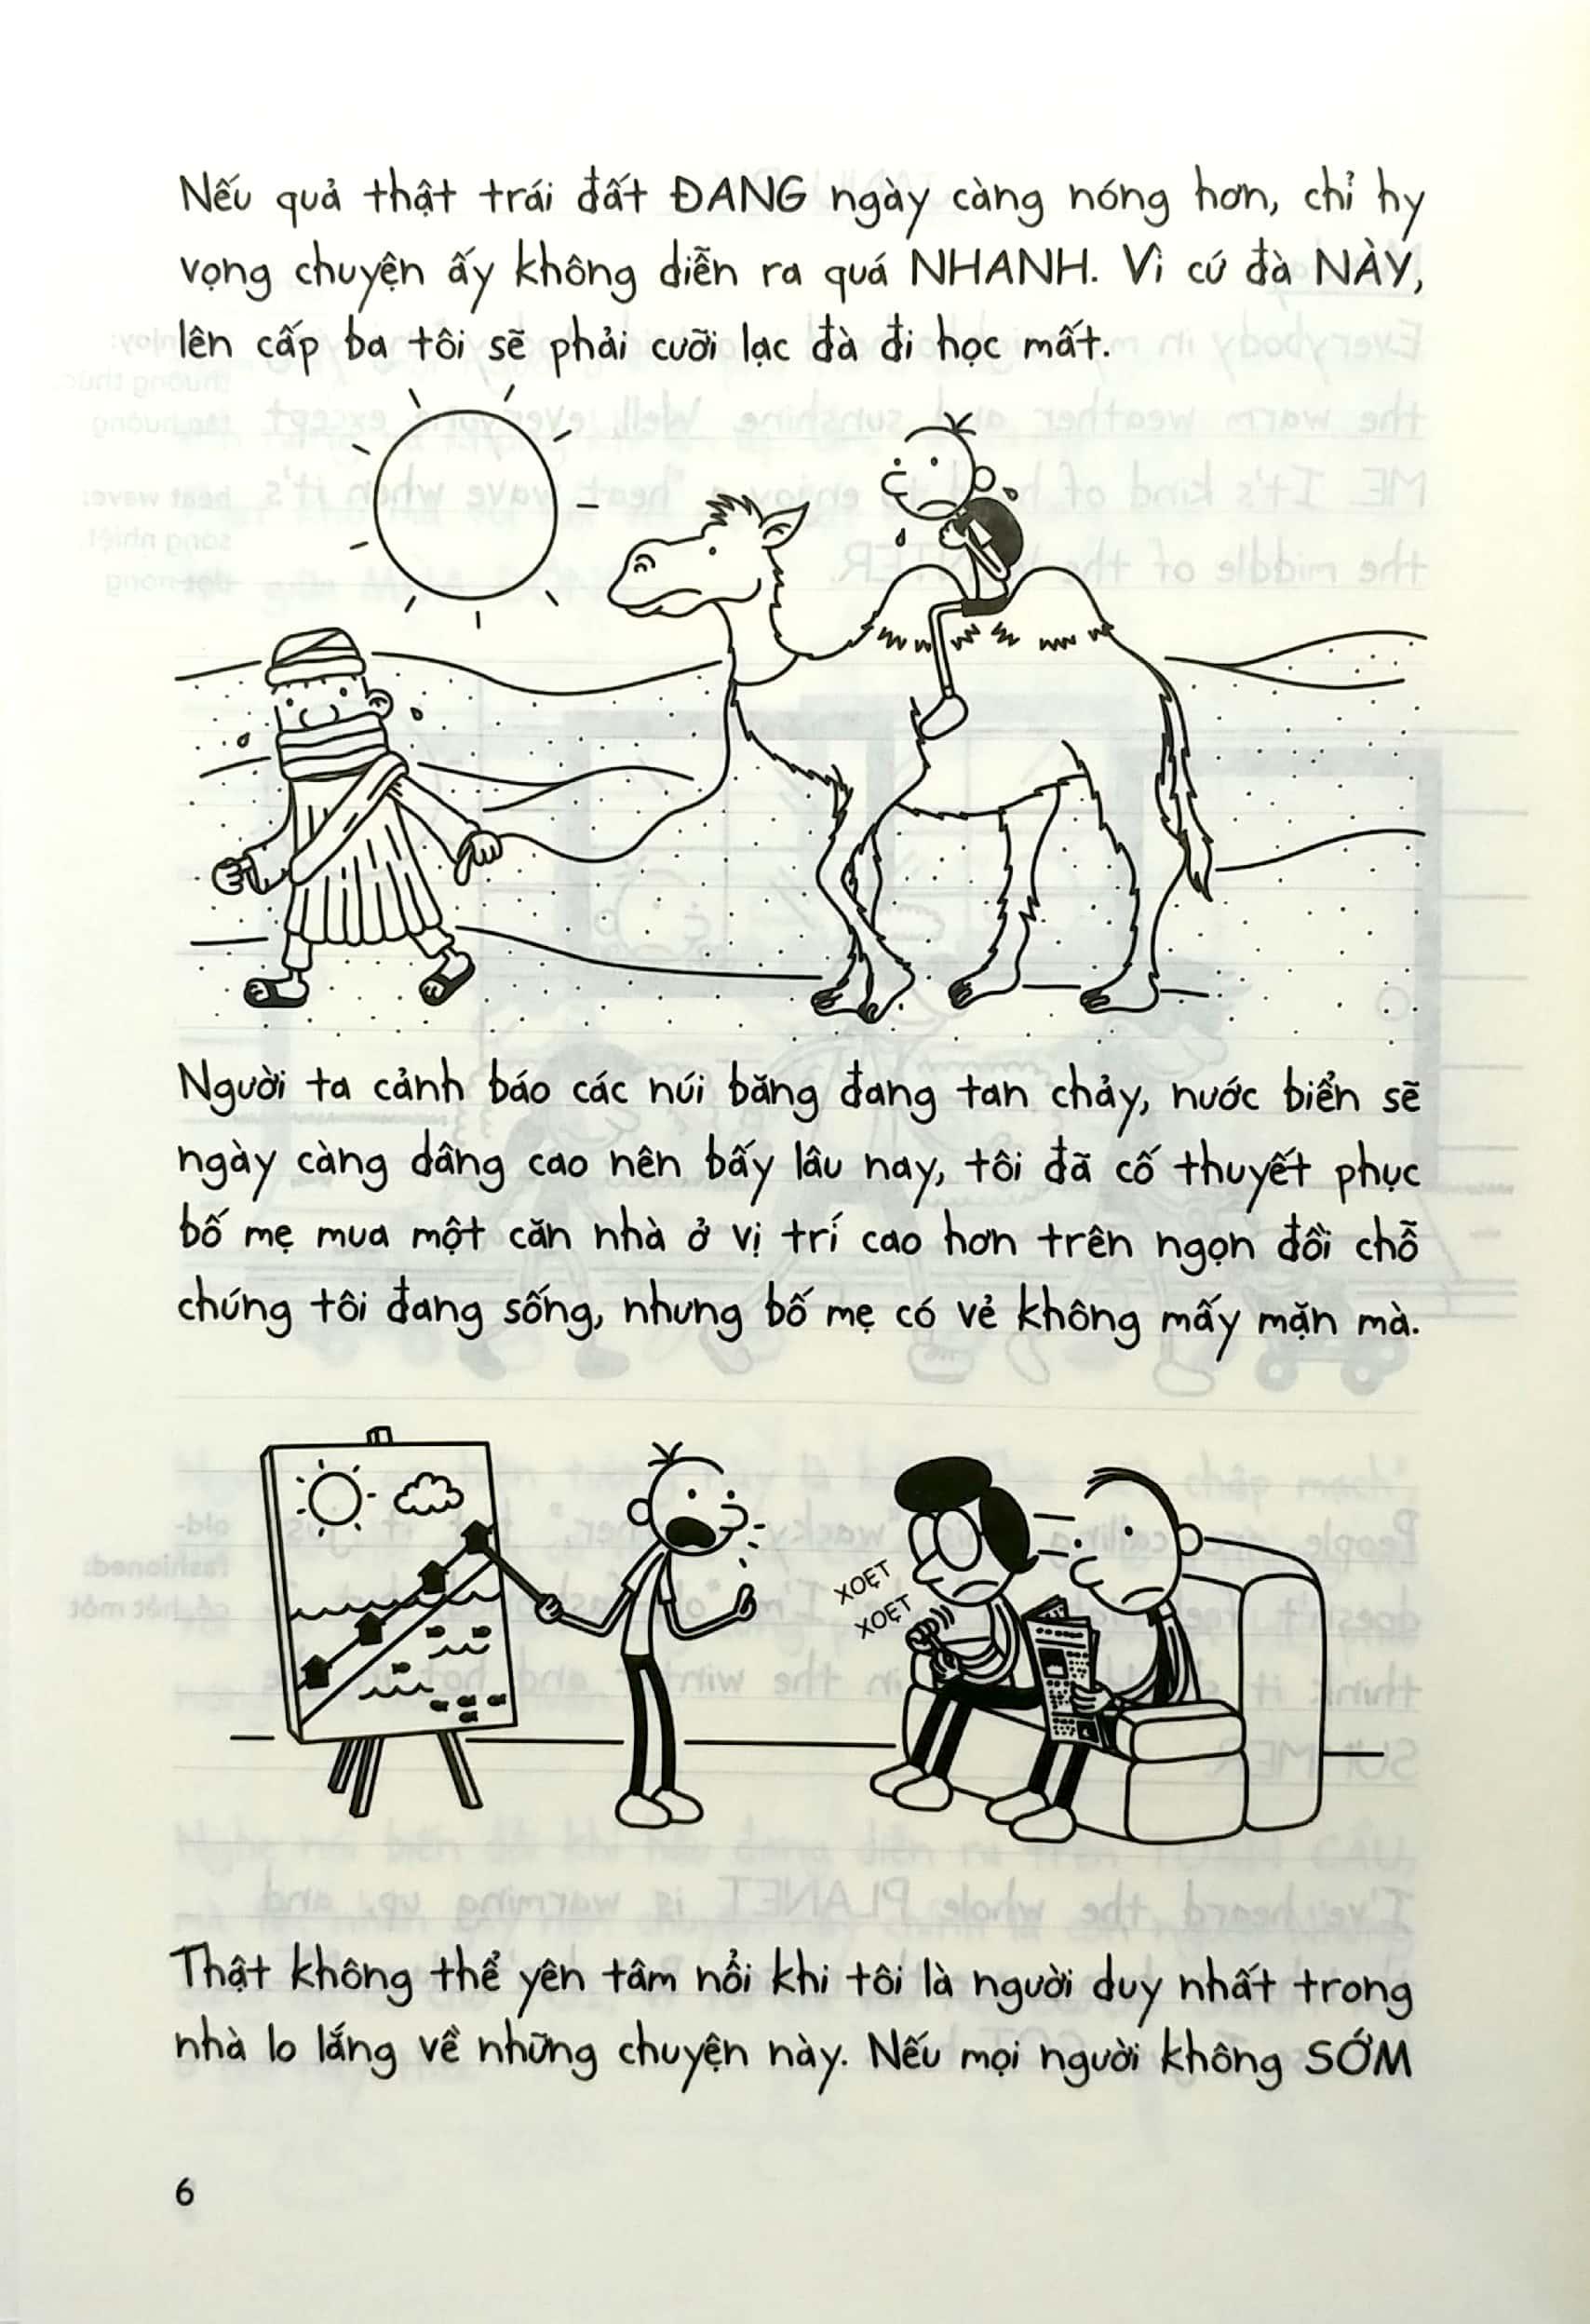 Nếu quả thật trái đất ĐANG ngày càng nóng hơn, chỉ hy
vọng chuyện ấy không diễn ra quá NHANH. Vì cứ đà NÀY,
lên cấp ba tôi sẽ phải cưỡi lạc đà đi học mất.
Người ta cảnh báo các núi băng đang tan chảy, nước biển sẽ
ngày càng dâng cao nên bấy lâu nay, tôi đã cố thuyết phục
bố mẹ mua một căn nhà ở vị trí cao hơn trên ngọn đồi chỗ
chúng tôi đang sống, nhưng bố mẹ có vẻ không mấy mặn mà.
XOẸT
XOẸT
Thật không thể yên tâm nổi khi tôi là người duy nhất trong
nhà lo lắng về những chuyện này. Nếu mọi người không SỚM
6